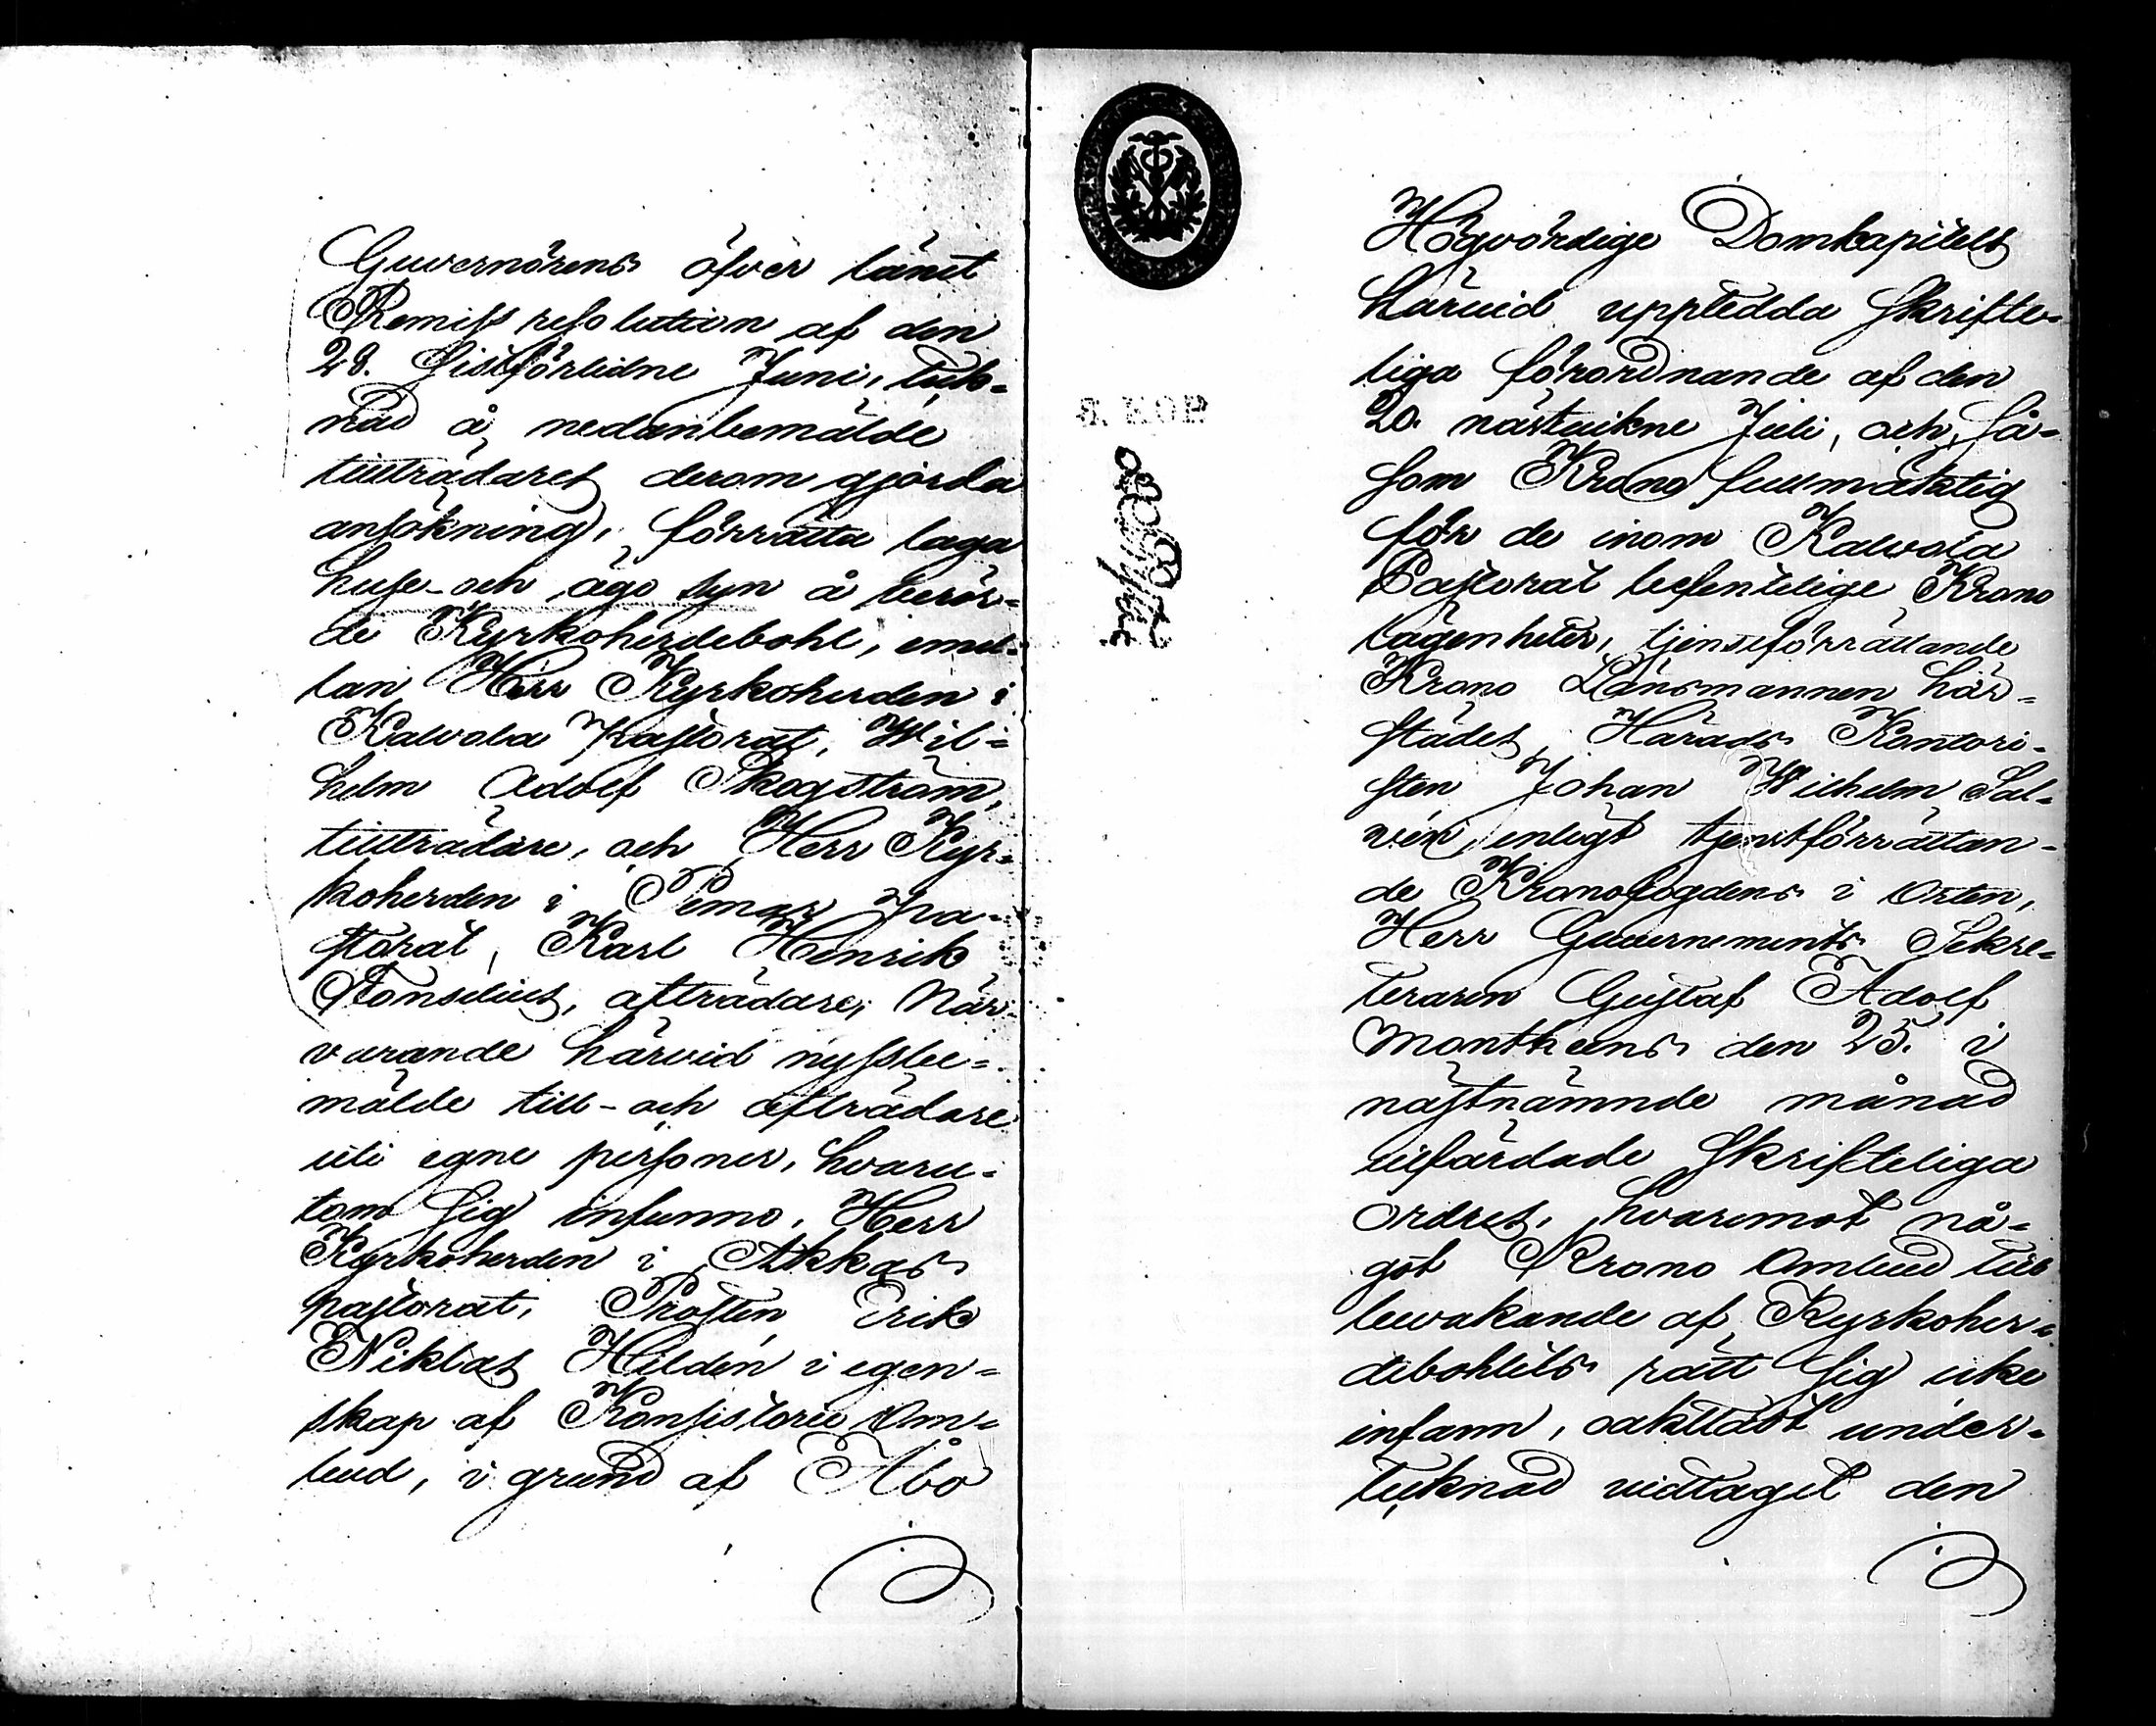 Guvernörens öfver länet
Remiss resolution af den
28. sistförlidne Juni, teck-
nad å nedanbemälde
tillträdares derom gjorda
ansökning, förrätta laga
huse- och ägo syn å berör-
de Kyrkoherdebohl, emel-
lan Herr Kyrkoherden i
Kalvola Pastorat, Wil-
helm Adolf Skogström,
tillträdare, och Herr Kyr-
koherden i Pemar Pa-
storat, Karl Henrik
afträdare; När-
varande härvid nyssbe-
mälde till- och afträdare
uti egne personer, hvaru-
tom sig infunno, Herr
Kyrkoherden i Akkas
pastorat, Prosten Erik
Niklas Hildén i egen-
skap af Konsistorii Om-
bud, i grund af Åbo
Högvördige Domkapitels
härvid uppledda skrifte-
liga förordnande af den
20. nästvikne Juli, och, så-
som Krono fullmäktig
för de inom Kalvola
Pastorat befintelige Krono
lägenheter, tjenstförrättande
Krono Länsmannen här-
städes, Härads Kontori-
sten Johan Wilhelm Sal-
vén, enligt tjenstförrättan-
de Kronofogdens i Orten,
Herr Guvernements Sekre-
teraren Gustaf Adolf
Montheens den 25. i
nästnämnde månad
utfärdade skrifteliga
ordres, hvaremot nå-
got Krono Ombud till
bevakande af Kyrkoher-
debohlets rätt sig icke
infann, oaktadt under-
tecknad vidtagit den
8. KOP.